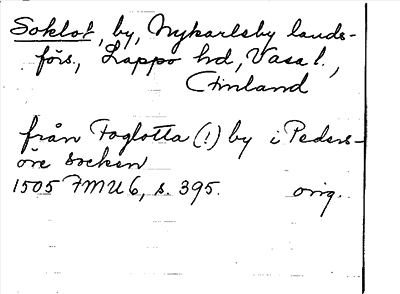 Soklot, by, Nykarleby lands-
förs., Lappo hd, Vasa l.,
Finland
från Foglotta (!) by i Peders-
öre socken
1505 FMU 6, s. 395. orig.